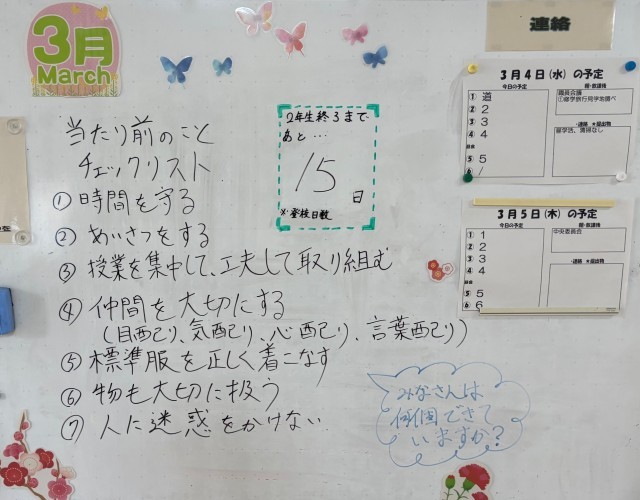 3月
March
当たり前のこと
チェックリスト
① 時間を守る
② あいさつをする
③ 授業を集中して、工夫して取り組む
④ 仲間を大切にする
(目配り、気配り、心配り、言葉配り)
⑤ 標準服を正しく着こなす
⑥ 物も大切に扱う
⑦ 人に迷惑をかけない
2年生終了まで
あと…
15
日
※登校日数
みなさんは
何個できて
いますか?
連絡
3月4日(水)の予定
今日の予定
1 道
2
3
4
5
6
職員会議
・連絡 ★提出物
3月5日(木)の予定
今日の予定
1
2
3
4
5
6
中央委員会
・連絡 ★提出物